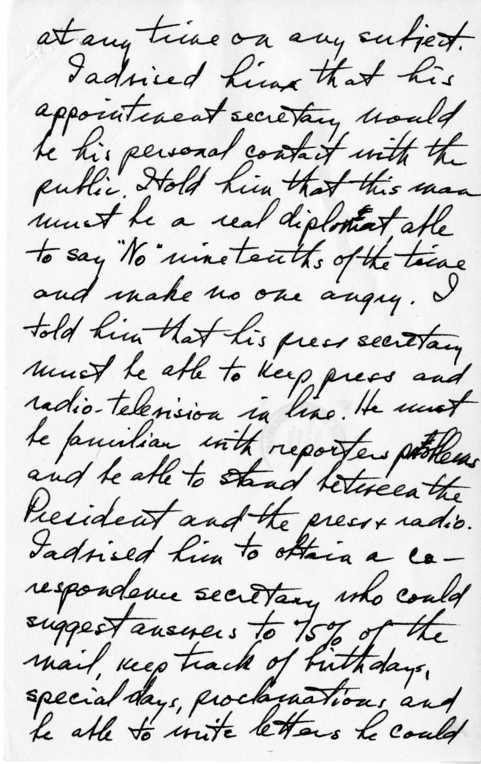 at any time on any subject.
I advised him that his
appointment secretary would
be his personal contact with the
public. I told him that this man
must be a real diplomat able
to say "No" nine tenths of the time
and make no one angry. I
told him that his press secretary
must be able to keep press and
radio-television in line. He must
be familiar with reporters problems
and be able to stand between the
President and the press & radio.
I advised him to obtain a co-
respondence secretary who could
suggest answers to 75% of the
mail, keep track of birthdays,
special days, proclamations and
be able to write letters he could